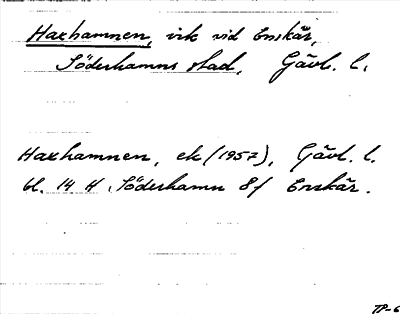 Haxhamnen, vik vid Enskär,
Söderhamns stad, Gävl. l.
Haxhamnen, ek (1957), Gävl. l.
bl. 14 H Söderhamn 8f Enskär.
TP-6